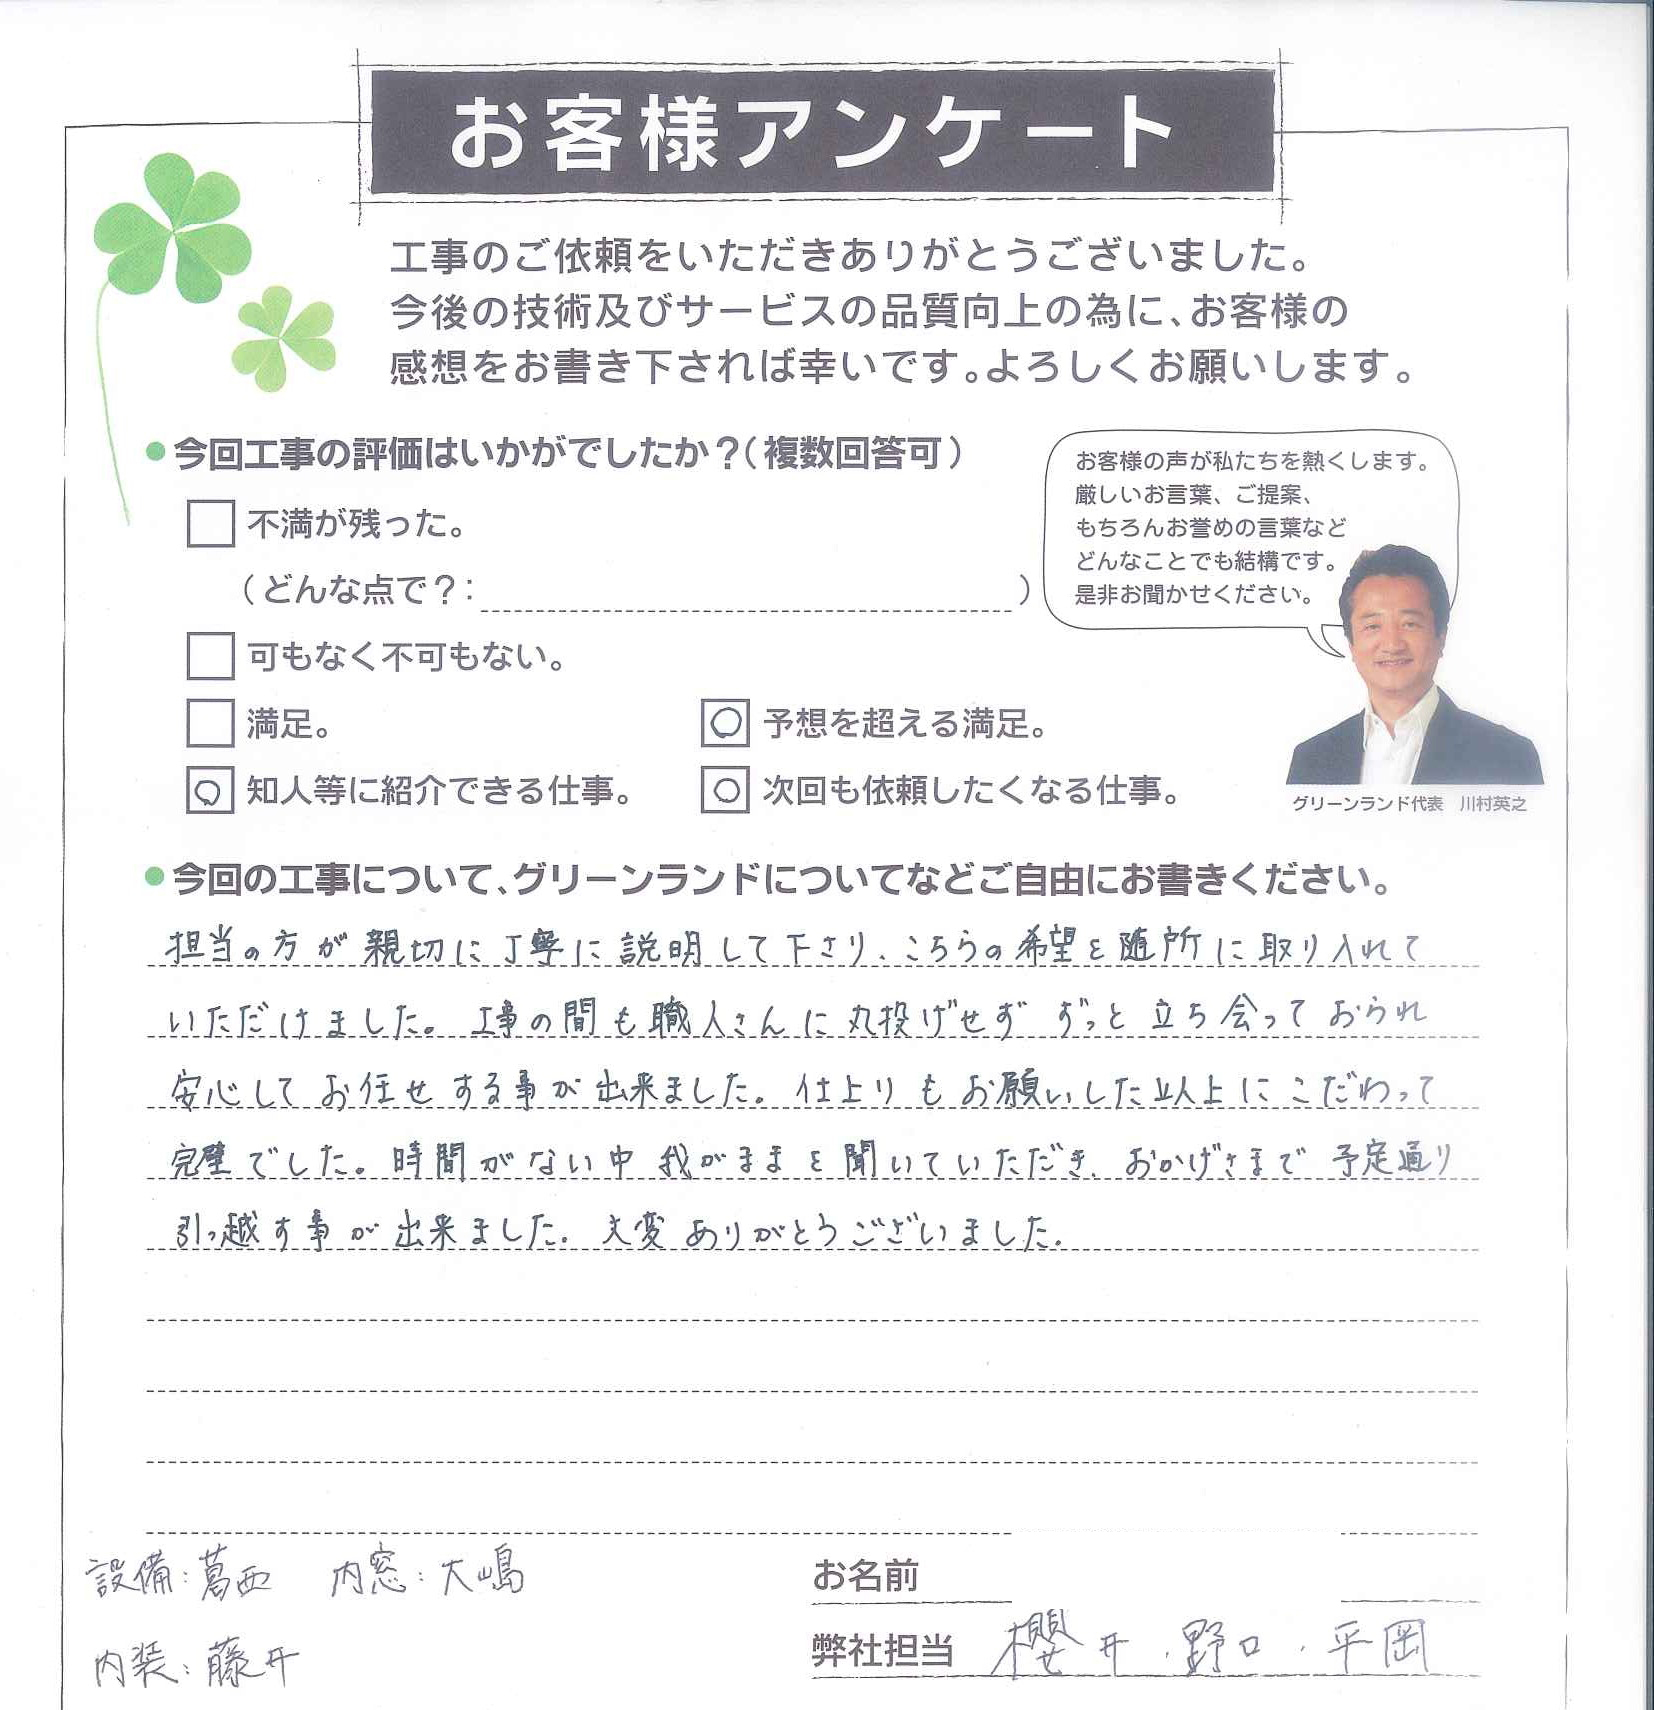 お客様アンケート
工事のご依頼をいただきありがとうございました。
今後の技術及びサービスの品質向上の為に、お客様の
感想をお書き下されば幸いです。よろしくお願いします。
●今回工事の評価はいかがでしたか？（複数回答可）
不満が残った。
（どんな点で？：　　　）
可もなく不可もない。
満足。
○ 予想を超える満足。
○ 知人等に紹介できる仕事。
○ 次回も依頼したくなる仕事。
お客様の声が私たちを熱くします。
厳しいお言葉、ご提案、
もちろんお誉めの言葉など
どんなことでも結構です。
是非お聞かせください。
グリーンランド代表　川村英之
●今回の工事について、グリーンランドについてなどご自由にお書きください。
担当の方が親切に丁寧に説明して下さり、こちらの希望を随所に取り入れて
いただけました。工事の間も職人さんに丸投げせず ずっと立ち会っておられ
安心してお任せする事が出来ました。仕上りもお願いした以上にこだわって
完璧でした。時間がない中我がままを聞いていただき、おかげさまで予定通り
引っ越す事が出来ました。大変ありがとうございました。
設備：葛西　内窓：大嶋
内装：藤井
お名前
弊社担当 櫻井、野口、平岡